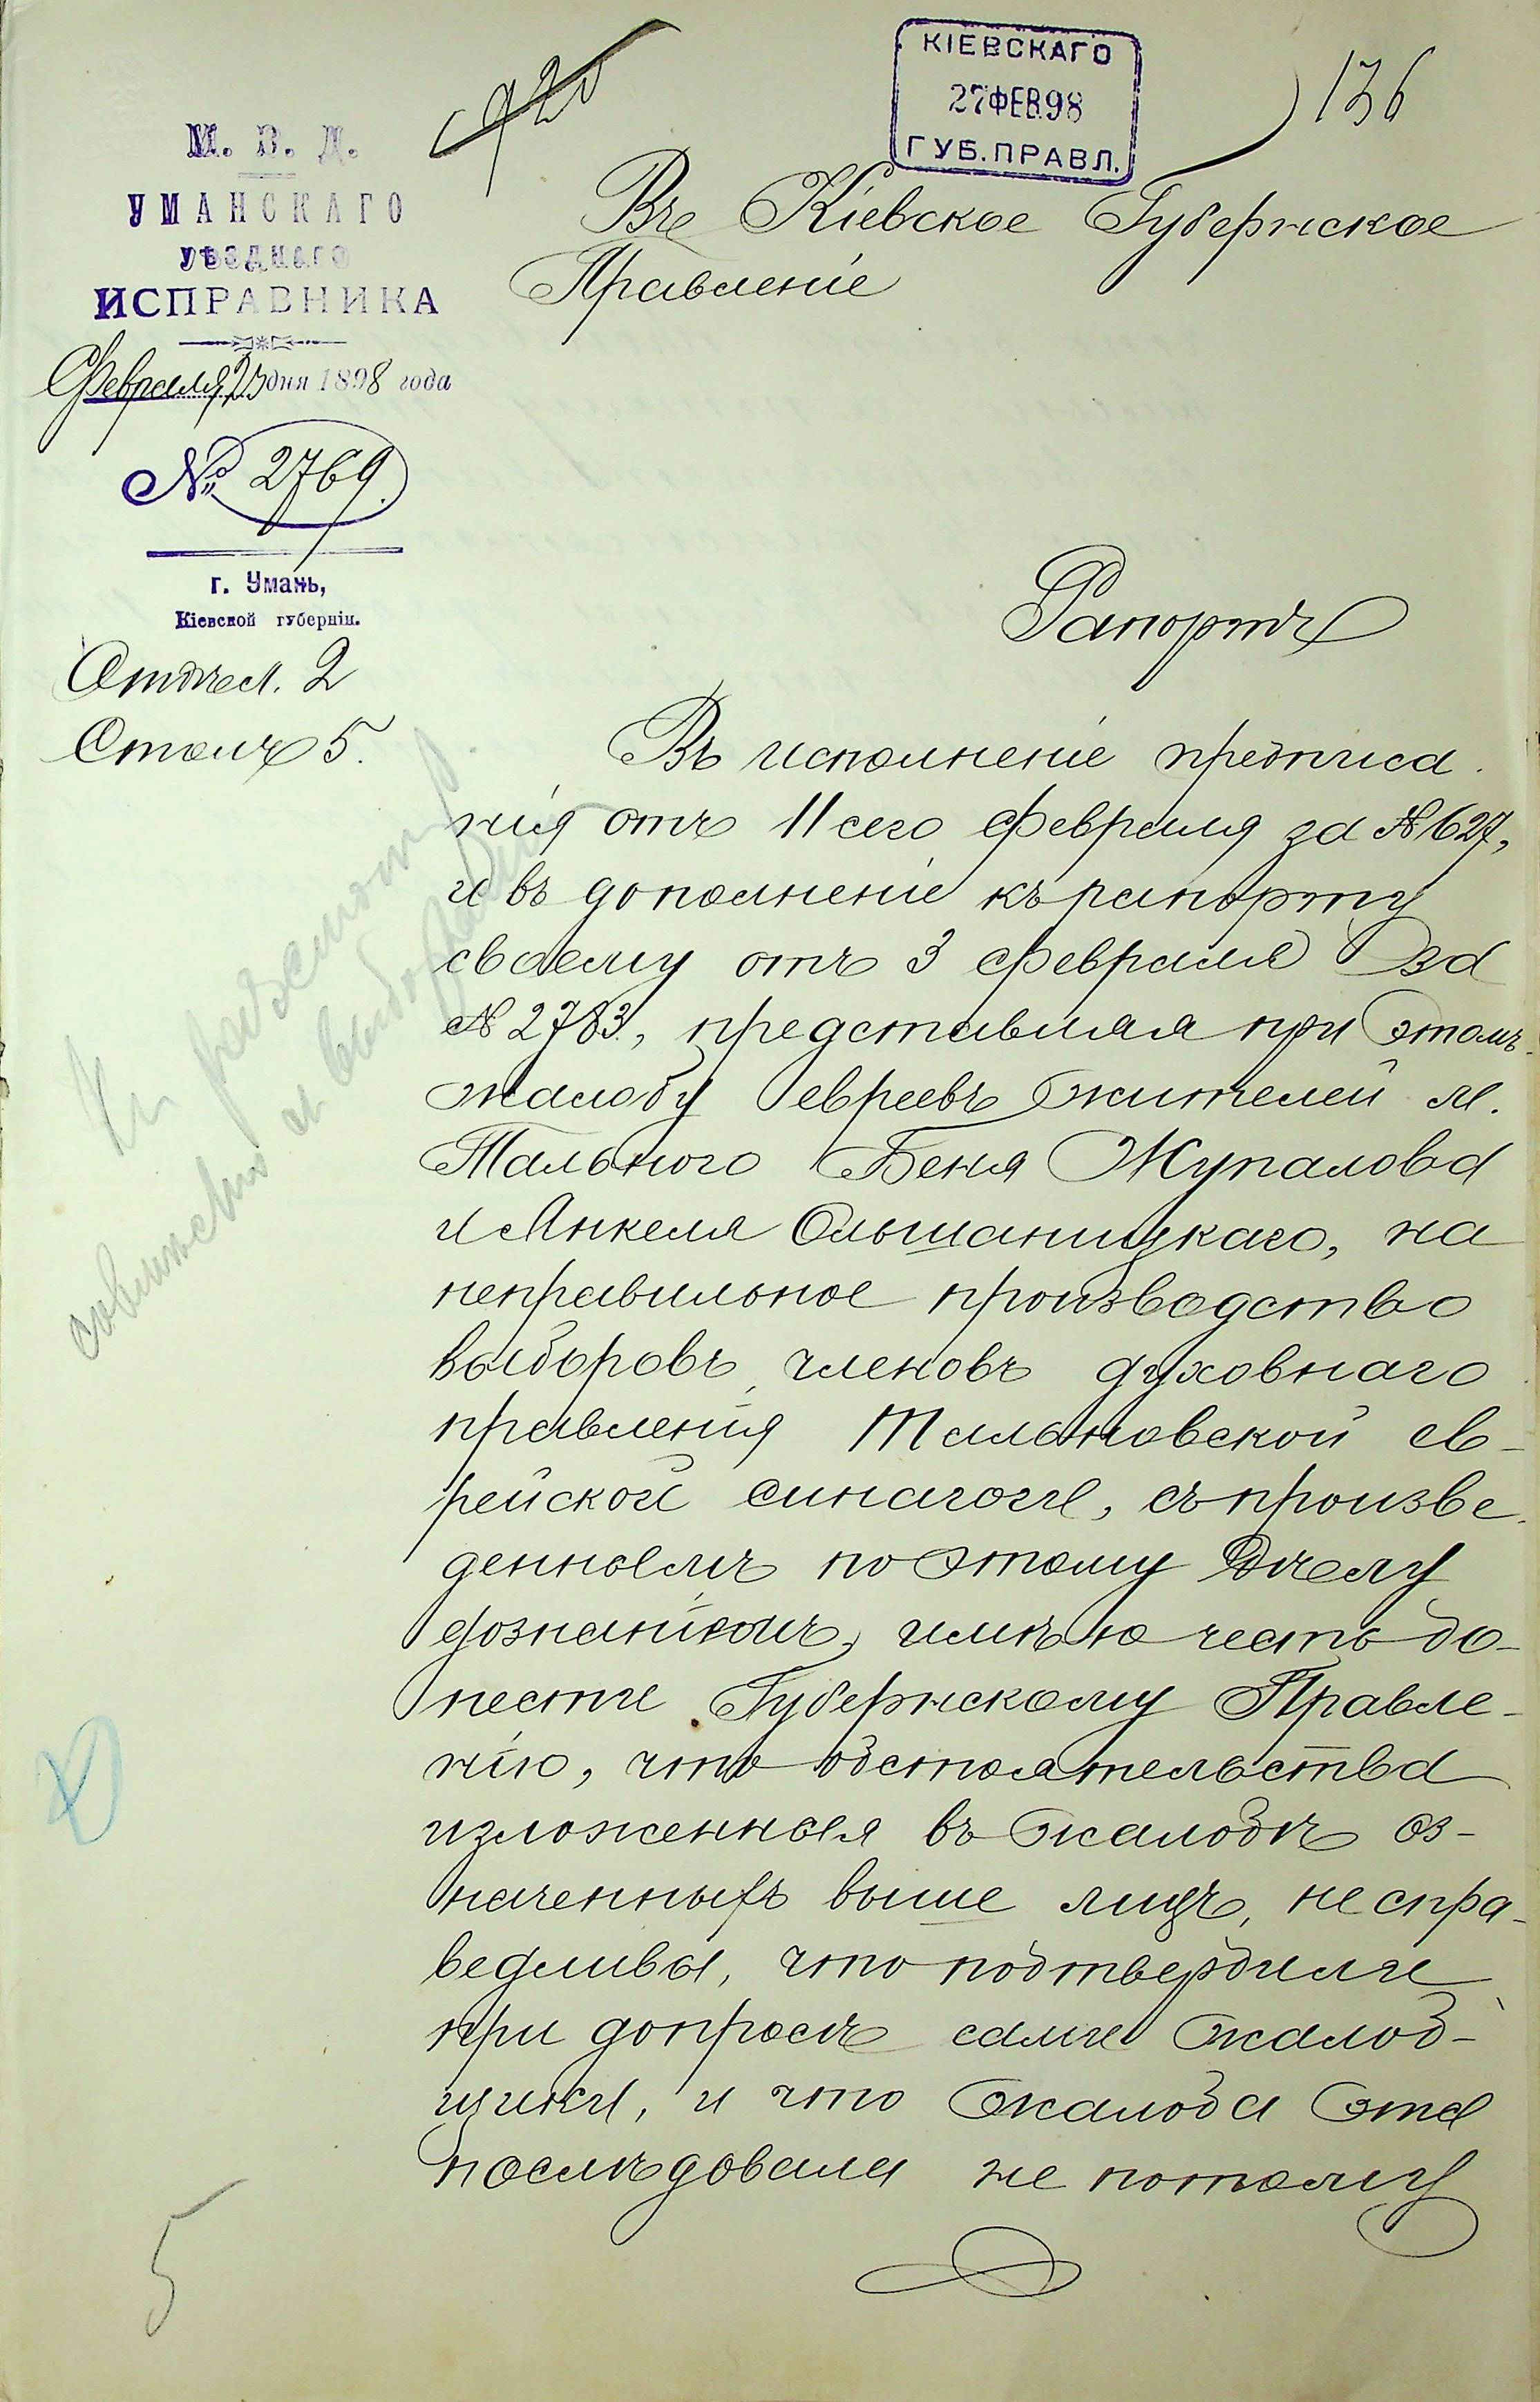 КІЕВСКАГО
27 ФЕВ. 98
ГУБ. ПРАВЛ.
136
М. В. Д.
УМАНСКАГО
УѢЗДНАГО
ИСПРАВНИКА
Февраля 23 дня 1898 года
№ 2769.
г. Умань,
Кіевской губерніи.
Отдѣл. 2
Столъ 5.
Въ Кіевское Губернское
Правленіе
Рапортъ
Въ исполненіе предписа-
нія отъ 11 сего февраля за № 627,
и въ дополненіе къ рапорту
своему отъ 3 февраля за
№ 2783, представляя при этомъ
жалобу евреевъ жителей м.
Тального Беня Жупалова
и Янкеля Ольшаницкаго, на
неправильное производство
выборовъ членовъ духовнаго
правленія Тальновской ев-
рейской синагоги, съ произве-
деннымъ по этому дѣлу
дознаніемъ, имѣю честь до-
нести Губернскому Правле-
нію, что обстоятельства
изложенныя въ жалобѣ оз-
наченныхъ выше лицъ, не спра-
ведливы, что подтвердили
при допросѣ сами жалоб-
щики, и что жалоба эта
послѣдовала не потому
5